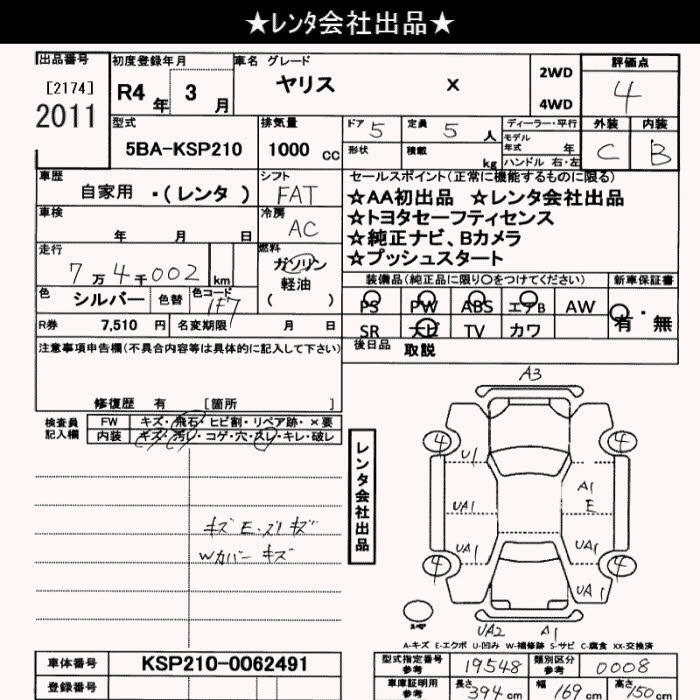 ★レンタ会社出品★
出品番号 初度登録年月 車名 グレード 評価点
[2174] R4年 3月 ヤリス X 2WD 4
2011 4WD
型式 排気量 ドア 5 定員 5人 ディーラー・平行 外装 内装
5BA-KSP210 1000 cc 形状 積載 kg モデル年式 年 C B
ハンドル 右・左
車歴 シフト セールスポイント(正常に機能するものに限る)
自家用 ・(レンタ) FAT ☆AA初出品 ☆レンタ会社出品
車検 冷房 ☆トヨタセーフティセンス
年 月 日 AC ☆純正ナビ、Bカメラ
走行 燃料 ☆プッシュスタート
7万4千002 km ガソリン 装備品(純正品に限り○をつけてください) 新車保証書
軽油
( )
色 シルバー 色替 色コード 1F7 PS PW ABS エアB AW 有・無
R券 7,510 円 名変期限 月 日 SR ナビ TV カワ
注意事項申告欄(不具合内容等は具体的に記入して下さい) 後日品 取説
修復歴 有 [箇所 ]
検査員記入欄 FW キズ・飛石・ヒビ割・リペア跡・×要
内装 キズ・汚レ・コゲ・穴・スレ・キレ・破レ
レンタ会社出品
キズ E・スリキズ
Wカバー キズ
A3
4 4
U1
A1
UA1 E
UA1 UA1
4 4
UA1
UA2 A1
スペア
A-キズ E-エクボ U-凹み W-補修跡 S-サビ C-腐食 XX-交換済
車体番号 KSP210-0062491 型式指定番号 参考 19548 類別区分 参考 0008
登録番号 車庫証明用 参考 長さ 394 cm 幅 169 cm 高さ 150 cm